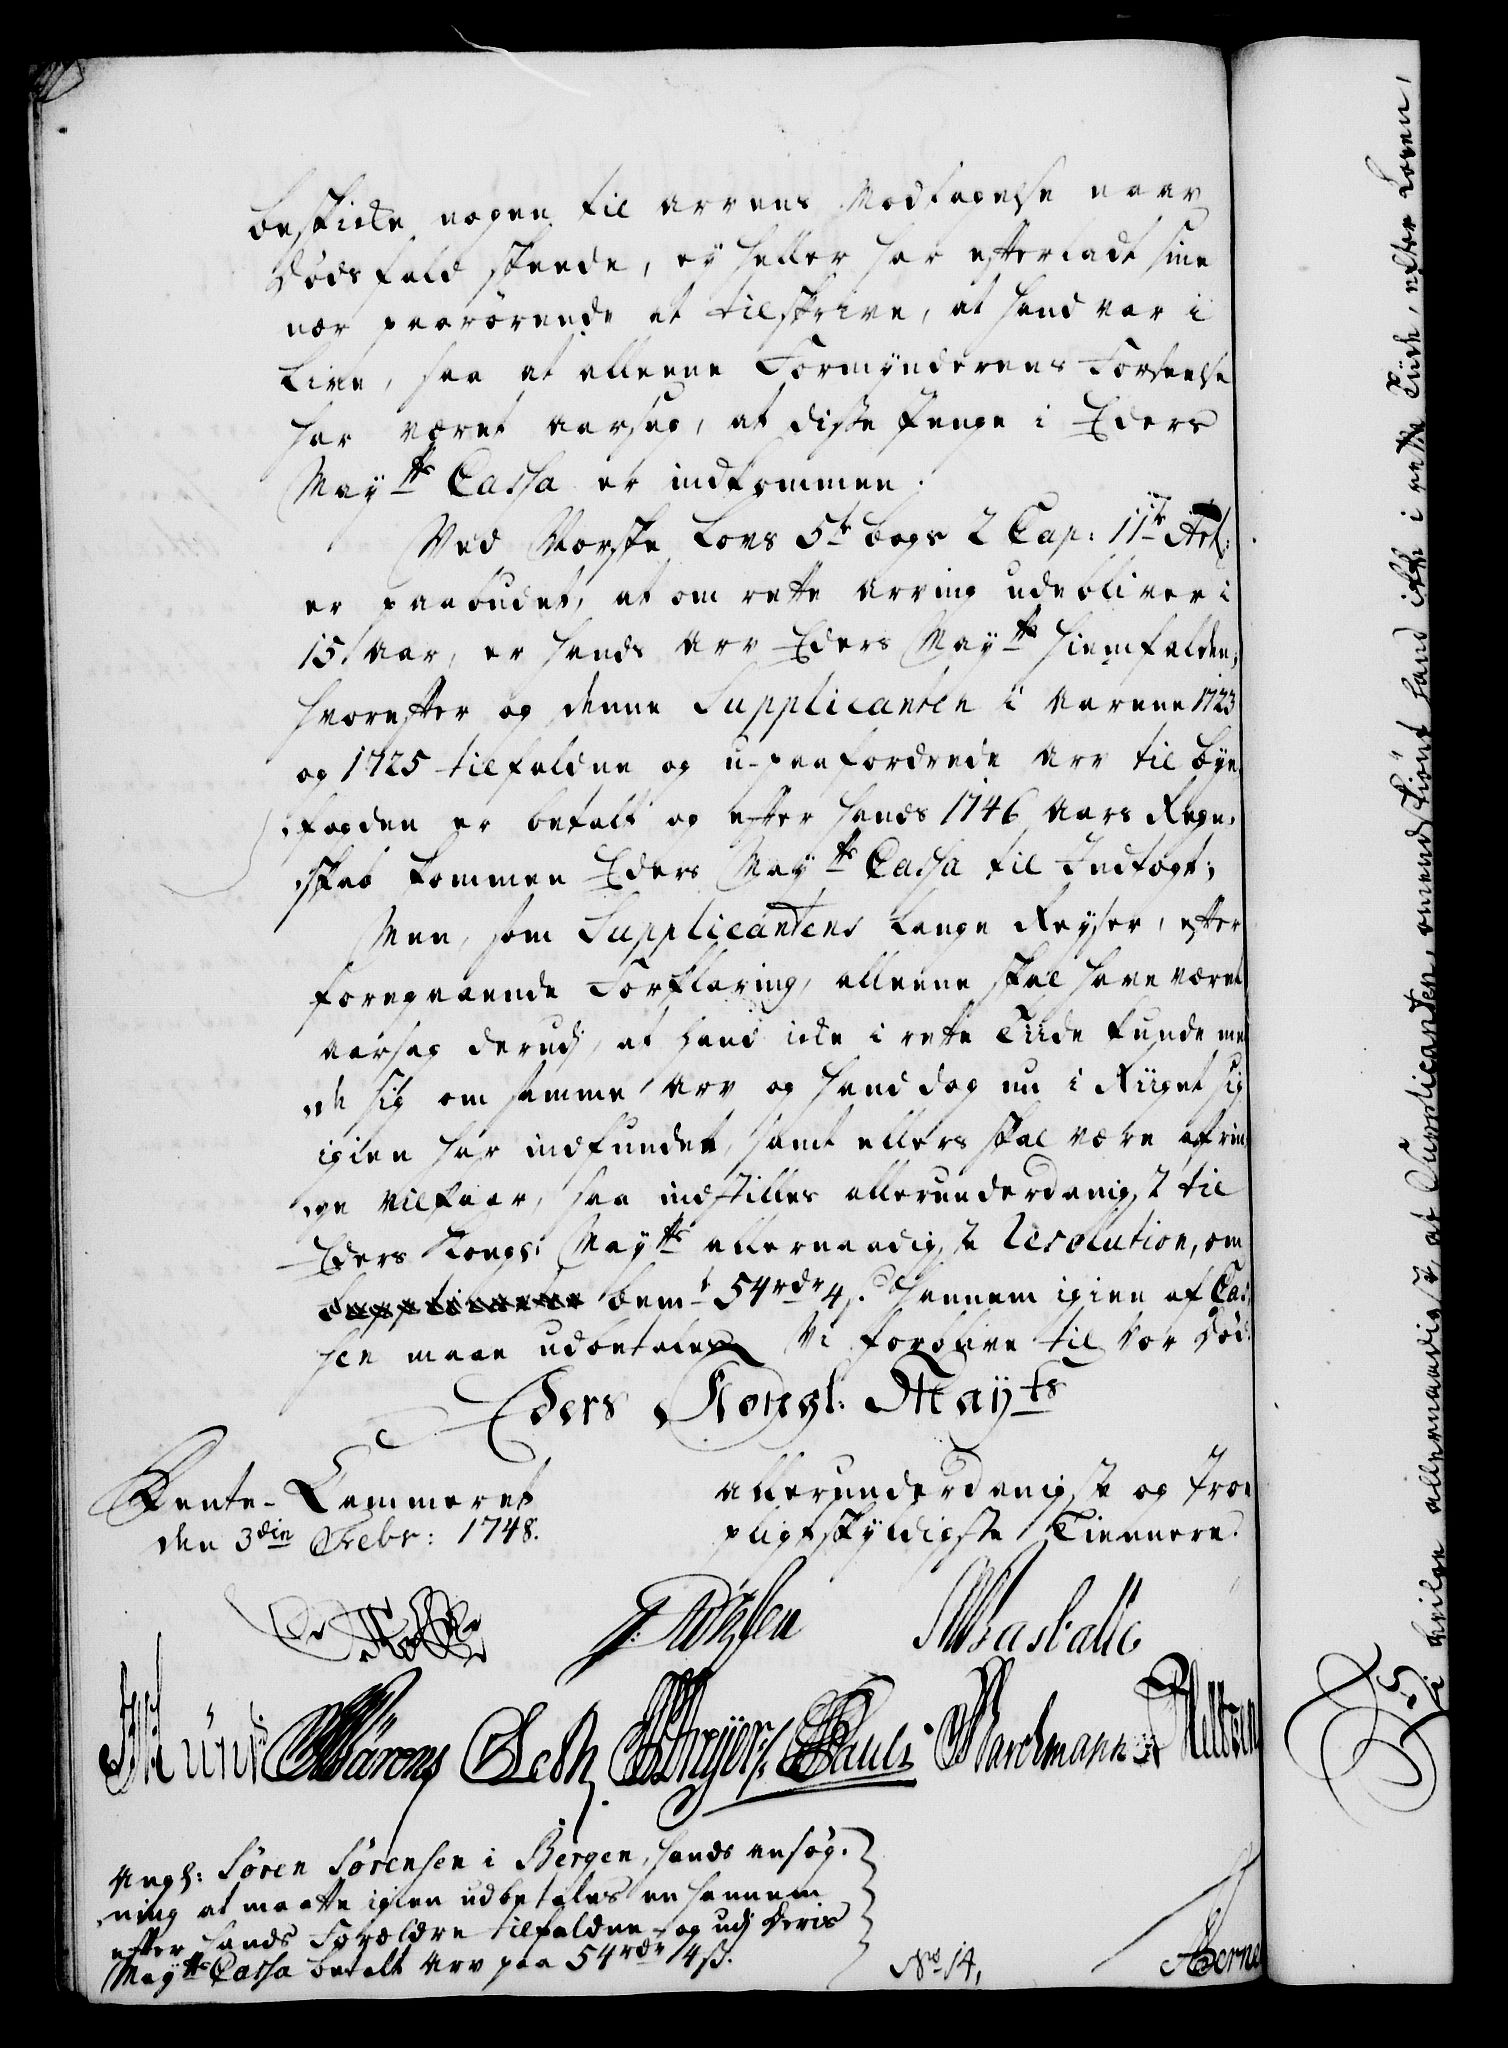 beskicke nogen til arvens Modtagelse naar
Dødsfald skeede, ey heller har efterladt sine
nær paarørende at tilskrive, at hand var i
Live, saa at alleene Formynderens Forseelse
har været aarsag, at disse Penge i Eders
Mayts Cassa er indkommen.
Ved Norske Lovs 5te bogs 2 Cap: 11te Art:
er paabudet, at om rette arving udebliver i
15 Aar, er hands Arv Eders Mayts hiemfalden;
hvorefter og denne Supplicanten i Aarene 1723
og 1725 tilfaldne og u-paafordrede Arv til bye
fogden er betalt og efter hands 1746 Aars Regn-
skab kommen Eders Mayts Cassa til Indtægt;
Men, som Supplicantens lange Reyser, efter
foregaaende Forklaring, alleene skal have været
aarsag derudj, at hand icke i rette Tiide kunde mel
de sig om samme Arv og hand dog nu i Riiget sig
igien har indfundet, samt ellers skal være af rin
ge vilkaar, saa indstilles allerunderdanigst til
Eders Kongl: Mayts allernaadigste Resolution, om
bemte 54 rdr 4 s. hannem igien af Cas
sen maae udbetales. Vi forblive til vor Død
Eders Kongl: Mayts
Rente-Cammeret
den 3die Febr: 1748.
allerunderdanigste og troe
pligtskyldigste Tiennere.
Angl: Søren Sørensen i Bergen, hands ansøg-
ning at maatte igien udbetales en hannem
efter hands Forældre tilfalden og udj Deris
Mayts Cassa betalt Arv paa 54 rdr 4 s.
No 14,
Vi ville allernaadigst, at Supplicanten, omendskiønt hand ikke i rette Tiide, efter Loven,